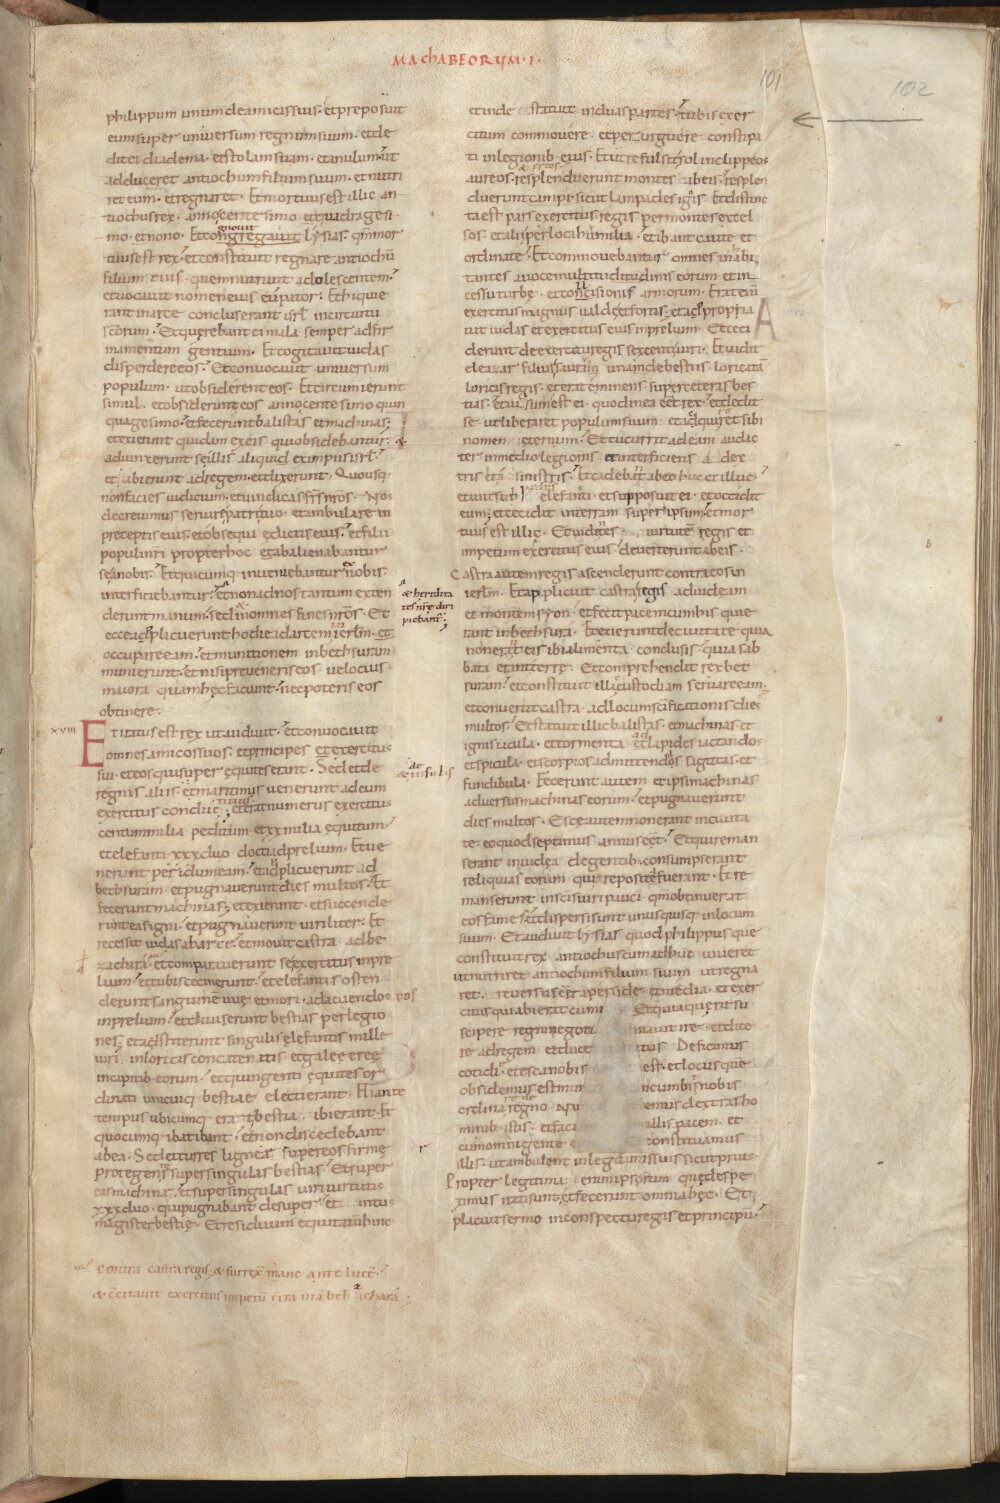 MACHABEORUM · I ·
101
102
philippum unum de amicis suis · et preposuit
eum super universum regnum suum · et de
dit ei diadema · et stolam suam · et anulum · ut
adduceret antiochum filium suum · et nutri
ret eum · et regnaret · Et mortuus est illic an
tiochus rex · anno centesimo et quadragesi
mo · et nono · Et congregavit lysias · qm̄ mor
gnovit
tuus est rex · et constituit regnare antiochū
filium eius · quem nutrivit adolescentem ·
et vocavit nomen eius eupator · Et hi qui e
rant in arce concluserant isrl̄ in circuitu
scōrum · Et querebant ei mala semper ad fir
mamentum gentium · Et cogitavit iudas
disperdere eos · Et convocavit universum
populum · ut obsiderent eos · Et circumierunt
simul · et obsiderunt eos anno centesimo quin
quagesimo · et fecerunt balistas et machinas ·
et exierunt quidam ex eis qui obsidebantur ·
adiunxerunt se illis aliqui ex impiis isrl̄ ·
et abierunt ad regem · et dixerunt · Quousq;
non facies iudicium · et vindicas frs̄ nrōs · Nos
decrevimus servire patri tuo · et ambulare in
preceptis eius · et obsequi edictis eius · et filii
populi nri propter hoc et abalienabantur
se a nobis · Et quicumq; inveniebantur ex nobis ·
interficiebantur ·
& heredita
tes nrę diri
piebant ·
et non ad nos tantum exten
derunt manum · sed in omnes fines nrōs · Et
ecce applicuerunt hodie ad arcem ierlm̄ · et
occupare eam · et munitionem in bethsuram
munierunt · et nisi preveneris eos velocius
maiora quam hęc faciunt · nec poteris eos
obtinere ·
XVIII
Et iratus est rex ut audivit · et convocavit
omnes amicos suos · et principes et exercitus
sui · et eos qui super equites erant · Sed et de
regnis aliis · et maritimis venerunt ad eum
& insulis
exercitus conducti · et erat numerus exercitus
centum milia peditum · et xx milia equitum ·
et elefanti xxxduo docti ad prelium · Et ve
nerunt per idumeam · et adplicuerunt ad
bethsuram · et pugnaverunt dies multos · Et
fecerunt machinas; et exierunt · et succende
runt eas igni · et pugnaverunt viriliter · Et
recessit iudas ab arce · et movit castra ad be
zachara · et comparaverunt se exercitus in pre
lium · et tubis cecinerunt · et elefantis osten
derunt sanguinē uvę · et mori · ad acuendos eos
in prelium · et diviserunt bestias per legio
nes · et adstiterunt singulis elefantis mille
viri in loricis concatenatis · et galee eree
in capitib· eorum · et quingenti equites or
dinati unicuiq; bestiae electi erant · Hi ante
tempus ubicumq; erat bestia · ibi erant · Et
quocumq; ibat ibant · et non discedebant
ab ea · Sed et turres lignee super eos firme
protegentes super singulas bestias · Et super
eas machinę · et super singulas viri virtutis
xxxduo · qui pugnabant desuper · et intus
magister bestię · Et residuum equitatū hinc
contra castra regis · & surrex̄ mane ante lucē ·
& cōcitavit exercitus impetū cōtra viā bethzacharā ·
et inde statuit in duas partes · tubis exer
citum commovere · et perurguere constipa
ti in legionib· eius · Et ut refulsit sol in clippeos
aureos · resplenduerunt montes ab eis · resplen
duerunt campi sicut lampades ignis · Et distinc
ta est pars exercitus regis per montes excel
sos · et alii per loca humilia · et ibant caute et
ordinate · Et commovebantur omnes inhabi
tantes a voce multitudinis eorum et in
cessu turbe · et concisionis armorum · Erat enī
exercitus magnus valde et fortis · et adpropria
A
vit iudas et exercitus eius in prelium · Et ceci
derunt de exercitu regis sexcenti viri · Et vidit
eleazar filius saurani unam de bestiis loricatā
loricis regis · et erat eminens super ceteras bes
tias · Et visum est ei quod in ea eēt rex · et dedit
se ut liberaret populum suum · et adquiret sibi
nomen eternum · Et cucurrit ad eam audac
ter in medio legionis et interficiens a dex
tris et a sinistris · Et cadebant ab eo huc et illuc ·
et ivit sub pedes elefanti · et supposuit ei · et occidit
eum; et cecidit in terram super ipsum; et mor
tuus est illic · Et videntes virtutē regis et
impetum exercitus eius deverterunt ab eis ·
Castra autem regis ascenderunt contra eos in
ierlm̄ · Et applicuit castra regis ad iudeam
et montem syon · et fecit pacem cum his qui e
rant in bethsura · Et exierunt de civitate quia
non erant eis ibi alimenta conclusis · quia sab
bata erant terre · Et comprehendit rex bet
suram · et constituit illic custodiam servire eam ·
et convertit castra ad locum scificationis dies
multos · Et statuit illic balistas · et machinas · et
ignis iacula · et tormenta ad lapides iactandos
et spicula · et scorpios ad mittendas sagittas · et
fundibula · Fecerunt autem et ipsi machinas
adversus machinas eorum · et pugnaverunt
dies multos · Escę autem non erant in civita
te · eo quod septimus annus eēt · Et qui reman
serant in iudea de gentib· consumpserant
reliquias eorum que reposite fuerant · Et re
manserunt in scīs viri pauci · qm̄ obtinuerat
eos fames · et dispersi sunt unusquisq; in locum
suum · Et audivit lysias quod philippus que
constituit rex antiochus cum adhuc viveret
ut nutriret antiochum filium suum · ut regna
ret · reversus eēt a perside et media · et exer
citus qui abierat cum Et quia querit su
scipere regni negoti inavit ire · et dice
re ad regem et duce itus Deficimus
cotidie et esca nobis est · et locus que
obsidemus est mun incumbit nobis
ordinare de regno Nu emus dextras ho
minib· istis · et faci illis pacem · et
cum omni gente e constituamus
illis · ut ambulent in legitimis suis sicut prius ·
Propter legitima enim ipsorum que despe
ximus irati sunt · et fecerunt omnia hęc · Et
placuit sermo in conspectu regis et principū ·